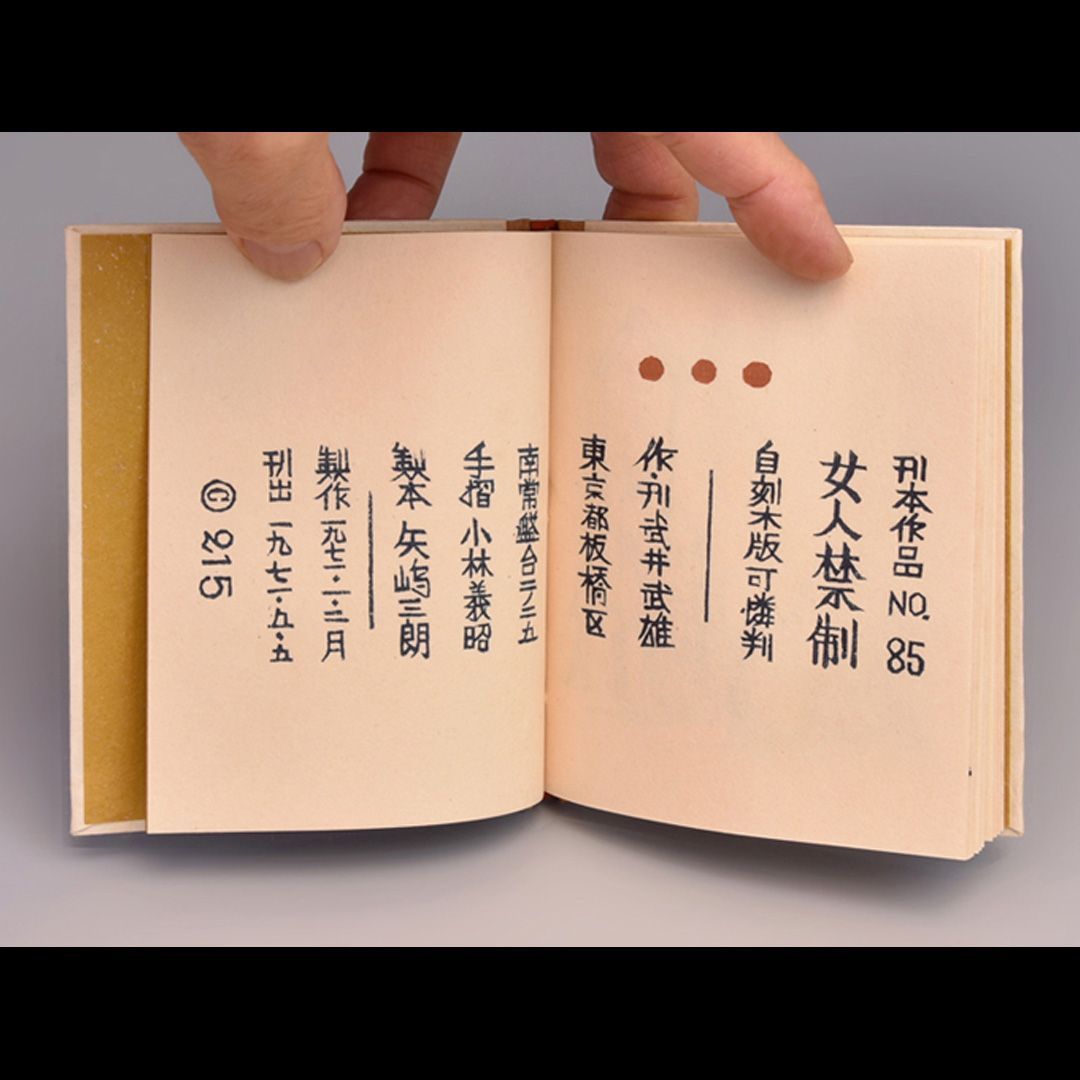 刊本作品 NO. 85
女人禁制
自刻木版可憐判
作・刊 武井武雄
東京都板橋区
南常盤台二ノ二五
手摺 小林義昭
製本 矢嶋三朗
製作 一九七一・二月
刊出 一九七一・五・五
© 215